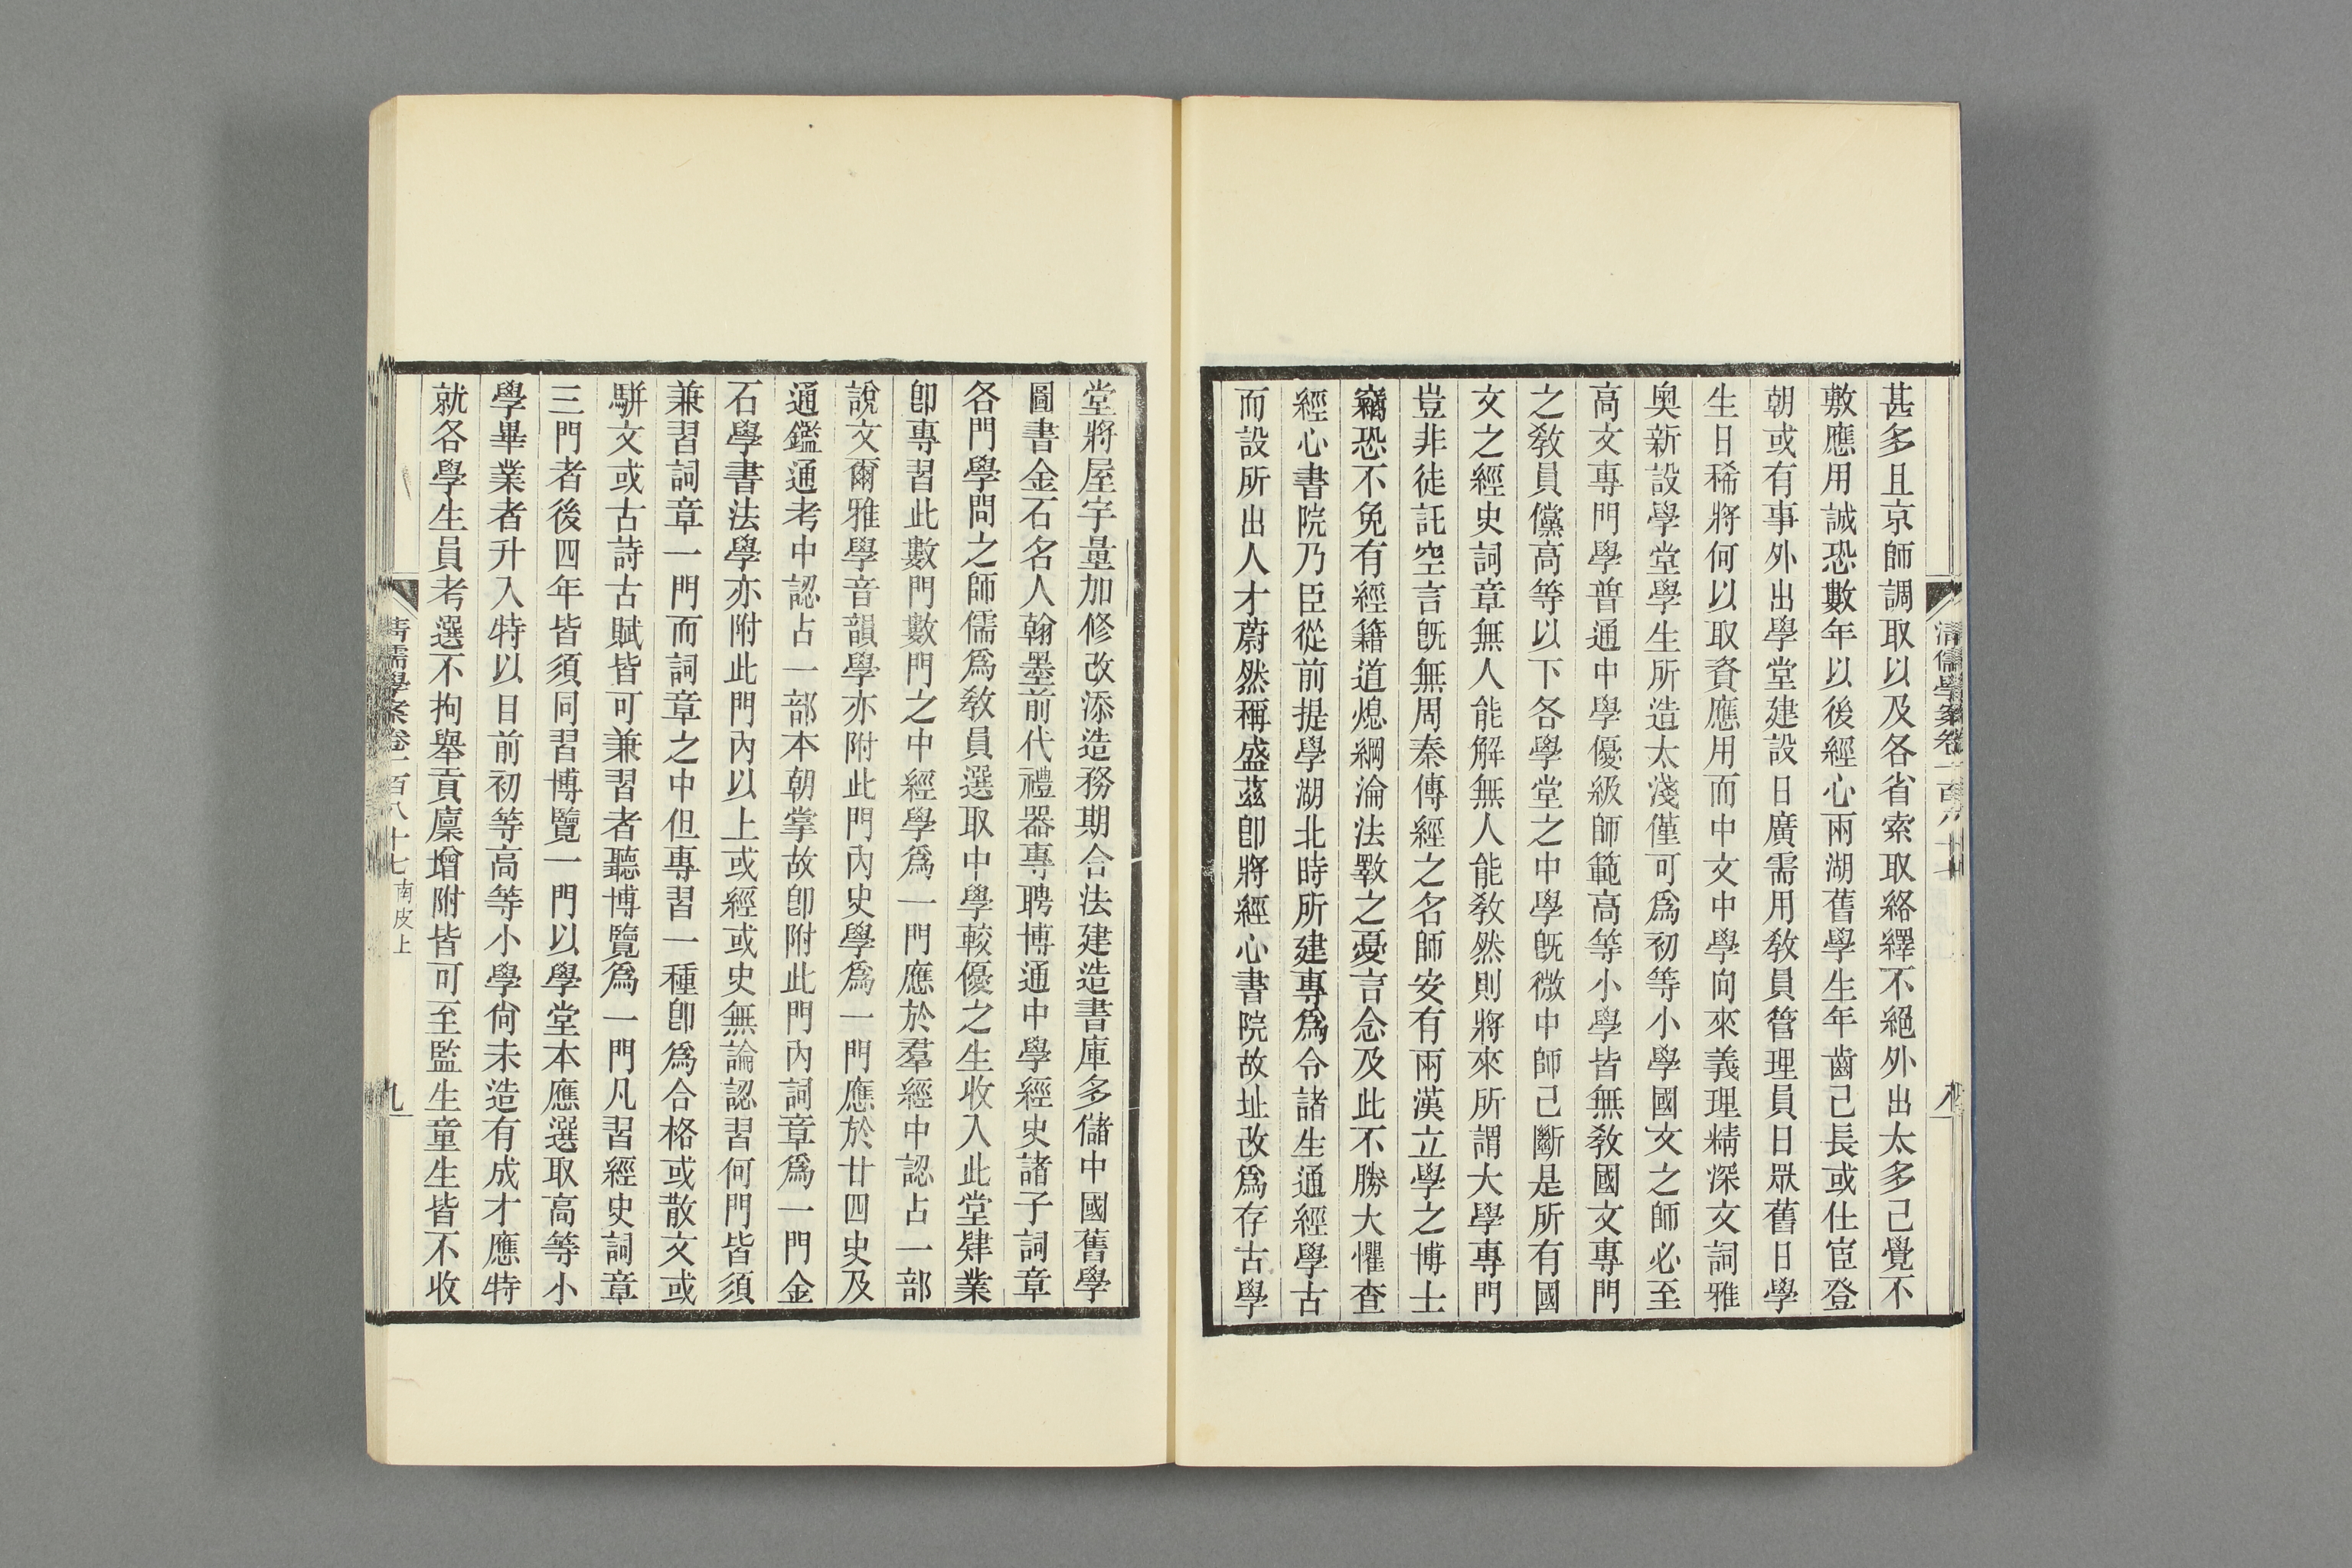 甚多且京師調取以及各省索取絡繹不絕外出太多已覺不
敷應用誠恐數年以後經心兩湖舊學生年齒已長或仕宦登
朝或有事外出學堂建設日廣需用敎員管理員日眾舊日學
生日稀將何以取資應用而中文中學向來義理精深文詞雅
奧新設學堂學生所造太淺僅可爲初等小學國文之師必至
高文專門學普通中學優級師範高等小學皆無敎國文專門
之敎員儻高等以下各學堂之中學旣微中師已斷是所有國
文之經史詞章無人能解無人能敎然則將來所謂大學專門
豈非徒託空言旣無周秦傳經之名師安有兩漢立學之博士
竊恐不免有經籍道熄綱淪法斁之憂言念及此不勝大懼查
經心書院乃臣從前提學湖北時所建專爲令諸生通經學古
而設所出人才蔚然稱盛茲卽將經心書院故址改爲存古學
清儒學案卷一百八十七
八
堂將屋宇量加修改添造務期合法建造書庫多儲中國舊學
圖書金石名人翰墨前代禮器專聘博通中學經史諸子詞章
各門學問之師儒爲敎員選取中學較優之生收入此堂肄業
卽專習此數門數門之中經學爲一門應於羣經中認占一部
說文爾雅學音韻學亦附此門內史學爲一門應於廿四史及
通鑑通考中認占一部本朝掌故卽附此門內詞章爲一門金
石學書法學亦附此門內以上或經或史無論認習何門皆須
兼習詞章一門而詞章之中但專習一種卽爲合格或散文或
駢文或古詩古賦皆可兼習者聽博覽爲一門凡習經史詞章
三門者後四年皆須同習博覽一門以學堂本應選取高等小
學畢業者升入特以目前初等高等小學尙未造有成才應特
就各學生員考選不拘舉貢廩增附皆可至監生童生皆不收
清儒學案卷一百八十七 南皮上
九